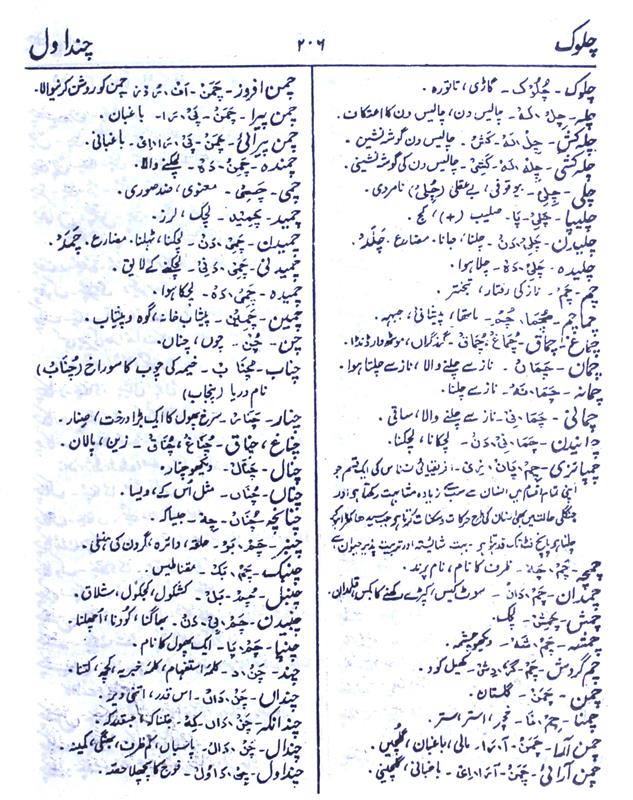 چلوک
۲۰۶
چنداول
چلوک - چَلُوْک - گاڑی، تانورہ.
چلہ - چِلْ، لَہْ - چالیس دن، چالیس دن کا اعتکاف.
چلہ کش - چِلْ، لَہْ - کَشْ. چالیس دن گوشہ نشین.
چلہ کشی - چِلْ، لَہْ - کَشِیْ - چالیس دن کی گوشہ نشینی.
چلی - چِلِیْ - بیوقوفی، بےعقلی (چُلِیْ) نامردی.
چلیپا - چَلِیْ - پَا - صلیب (+)، کج.
چلیدن - چَلِیْ، دَنْ - چلنا، جانا. مضارع. چَلَدْ.
چلیدہ - چَلِیْ - دَہْ - چلا ہوا.
چم - چَمْ - ناز کی رفتار، تبختر.
چماچم -
چماغ - چماق - چُمَاغْ، چُمَاقْ -
چمان - چَمَانْ - ناز سے چلنے والا، ناز سے چلتا ہوا.
چمانہ - چَمَا، نَہْ - ناز سے چلنے.
چمانی - چَمَا، نِیْ - ناز سے چلنے والا، ساقی.
چمانیدن - چَمَا، نِیْ، دَنْ - لچکانا، لچکنا.
چمپانزی -
اپنی تمام اقسام میں انسان سے سب سے زیادہ مشابہت رکھتا ہے اور
جنگلی حالت میں بھی انسان کی طرح حرکات و سکنات کرتا ہے
بہت شائستہ اور تربیت پذیر حیوان ہے
چمچہ - چَمْ، چَہْ - ظرف کا نام، نام پرند.
چمدان - چَمْ، دَانْ - سوٹ کیس، کپڑے رکھنے کا بکس، قلمدان.
چمش - چَمِشْ - لچک.
چمشہ - چَمْ، شَہْ - دیکھو چشمہ.
چم گردش - چَمْ - گَرْ، دِشْ - کھیل کود.
چمن - چَمَنْ - گلستان.
چمنا - چَمْ، نَا - خچر، استر، استر.
چمن آرا - چَمَنْ - آ، رَا - مالی، باغبان، گلچیں.
چمن آرائی - چَمَنْ - آ، رَا، ءِیْ - باغبانی، گلچینی
چمن افروز - چَمَنْ - اَفْ، رُوْز. چمن کو روشن کرنیوالا.
چمن پیرا - چَمَنْ - پَیْ، رَا - باغبان.
چمن پیرائی - چَمَنْ - پَیْ، رَا، ءِیْ - باغبانی.
چمندہ - چَمَنْ، دَہْ - لچکنے والا.
چمی - چَمِیْ - معنوی، ضد صوری.
چمید - چَمِیْد - لچک، لرز.
چمیدن - چَمِیْ - دَنْ - لچکنا، ٹہلنا. مضارع. چَمَدْ
چمیدنی - چَمِیْ، دَنِیْ - لچکنے کے لایق.
چمیدہ - چَمِیْ، دَہْ - لچکا ہوا.
چمین - چَمِیْنْ - پیشاب خانہ، گوہ و پیشاب.
چن - چُنْ - چوں، چناں.
چناب - چَنَابْ - خیمہ کی چوب کا سوراخ (چُنَابْ)
نام دریا (پنجاب)
چنار - چَنَار - سرخ پھول کا ایک بڑا درخت، چنار.
چناغ، چناق - چُنَاغْ، چُنَاقْ - زین، پالان.
چنال - چَنَالْ - دیکھو چنار.
چناں - چُنَاں - مثل اس کے، ویسا.
چنانچہ - چُنَانْ - چِہْ - جیسا کہ.
چنبر - چَمْ، بَرْ - حلقہ، دائرہ، گردن کی ہنسلی.
چنبک - چَمْ، بَکْ - مقناطیس.
چنبل - چَمْ، بَلْ - کشکول، کچکول، شلاق.
چنبیدن - چَمْ، بِیْ، دَنْ - بھاگنا، کودنا، اچھلنا.
چنپا - چَمْ، پَا - ایک پھول کا نام.
چند - چَنْ، د - کلمۂ استفہام، کلمۂ خبریہ، کچھ، کتنا.
چنداں - چَنْ، دَاں - اس قدر، اتنی دیر.
چندانکہ - چَنْ، دَاں - کِہْ - جتنا کہ، جسقدر کہ.
چندال - چَنْ، دَالْ - پاسبان، کم ظرف، بھنگی، کمینہ.
چنداول - چَنْ، دَا، وُلْ - فوج کا پچھلا حصہ.